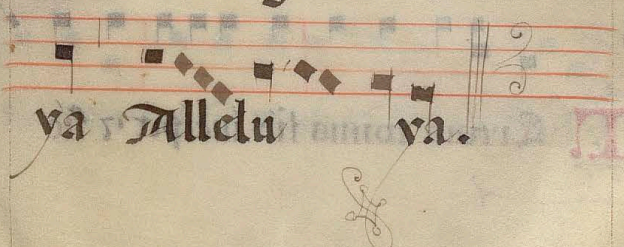 ya Allelu ya.